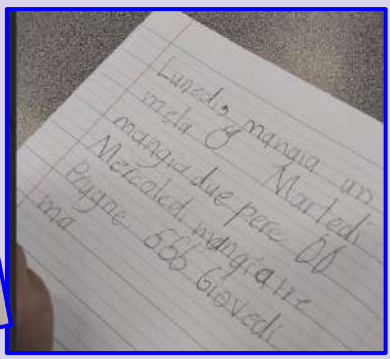 Lunedi, mangia un
mela Martedi
mangia due pere
Mercoledi mangia tre
Prugne Giovedi
ma